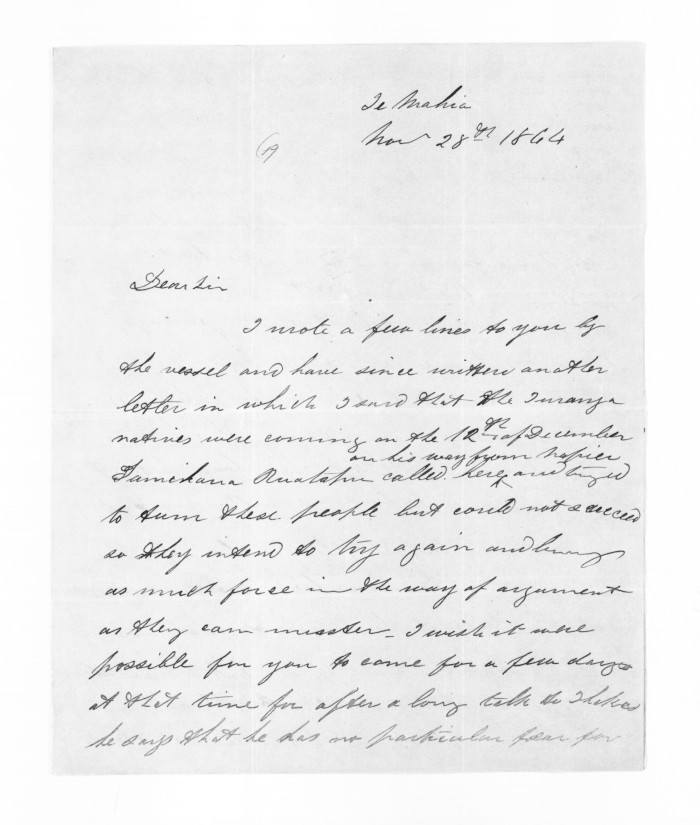 Te Mahia
Nov 28th 1864
Dear Sir
I wrote a few lines to you by
the vessel and have since written another
letter in which I said that the Turanga
natives were coming on the 12th of December
on his way from Napier
Tamihana Ruatapu called here and tryed
to turn these people but could not succeed
so they intend to try again and bring
as much force in the way of argument
as they can muster_ I wish it were
possible for you to come for a few days
at that time for after a long talk
he says that he has no particular fear for